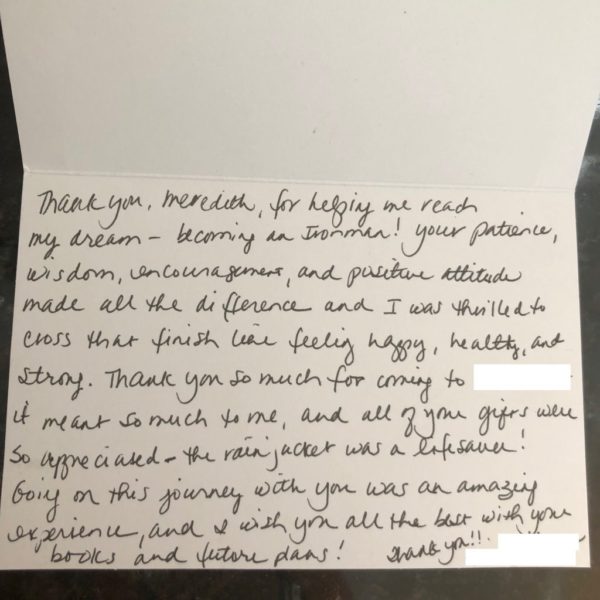 Thank you, Meredith, for helping me reach
my dream – becoming an Ironman! Your patience,
wisdom, encouragement, and positive attitude
made all the difference and I was thrilled to
cross that finish line feeling happy, healthy, and
strong. Thank you so much for coming to
it meant so much to me, and all of your gifts were
so appreciated – the rain jacket was a lifesaver!
Going on this journey with you was an amazing
experience, and I wish you all the best with your
books and future plans! Thank you!!